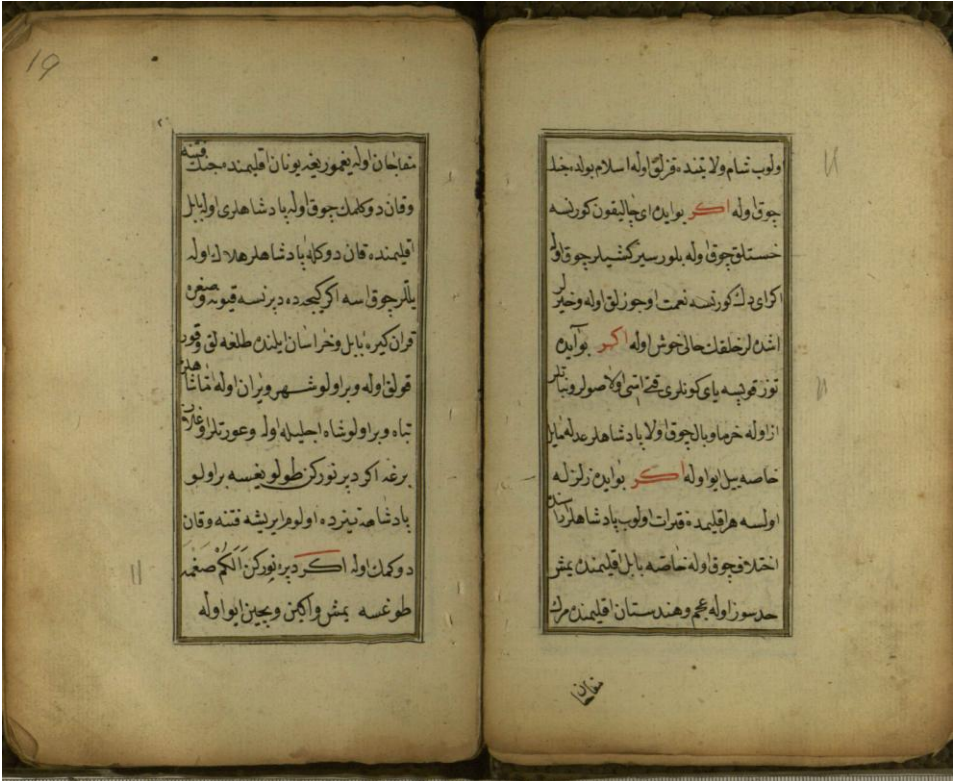 اولوب شام ولايتنده قزلق اوله اسلام بولده جنك
چوق اوله اكر بو ايده اى چاليقون كورنسه
خستلق چوق اوله بلورسز كشيلر چوق اوله
اكر اى دك كورنسه نعمت اوجوزلق اوله وخير
اشده لر خلقك حالى خوش اوله اكر بو آيده
توز قوپسه ياى كونلرى قتى اسى اولا صولر ونباتلر
از اوله خرما وبال چوق اولا پادشاهلر عدله مايل
خاصه ييل ايو اوله اكر بو ايده زلزله
اولسه هر اقليمده فترات اولوب پادشاهلر
اختلاف چوق اوله خاصه بابل اقليمنده يمش
حدسوز اوله عجم وهندستان اقليمنده مرك
مفاجان
19
مفاجان اوله يغمور يغه يونان اقليمنده جنك فتنه
وقان دوكلمك چوق اوله پادشاهلرى اوله بابل
اقليمنده قان دوكله پادشاهلر هلاك اوله
يللر چوق اسه اكر كيجه ده دپرنسه قيونه
قران كيره بابل وخراسان ايلنده طلغه لق
قولق اوله وبر اولو شهر ويران اوله
تباه وبر اولو شاه اجليله اوله وعورتلر اوغلان
برغه اكر دپرنوركن طولو يغسه بر اولو
پادشاه اولوم ايريشه فتنه وقان
دوكمك اوله اكر دپرنوركن الكم صغمه
طوغسه يمش واكين وبچين ايو اوله